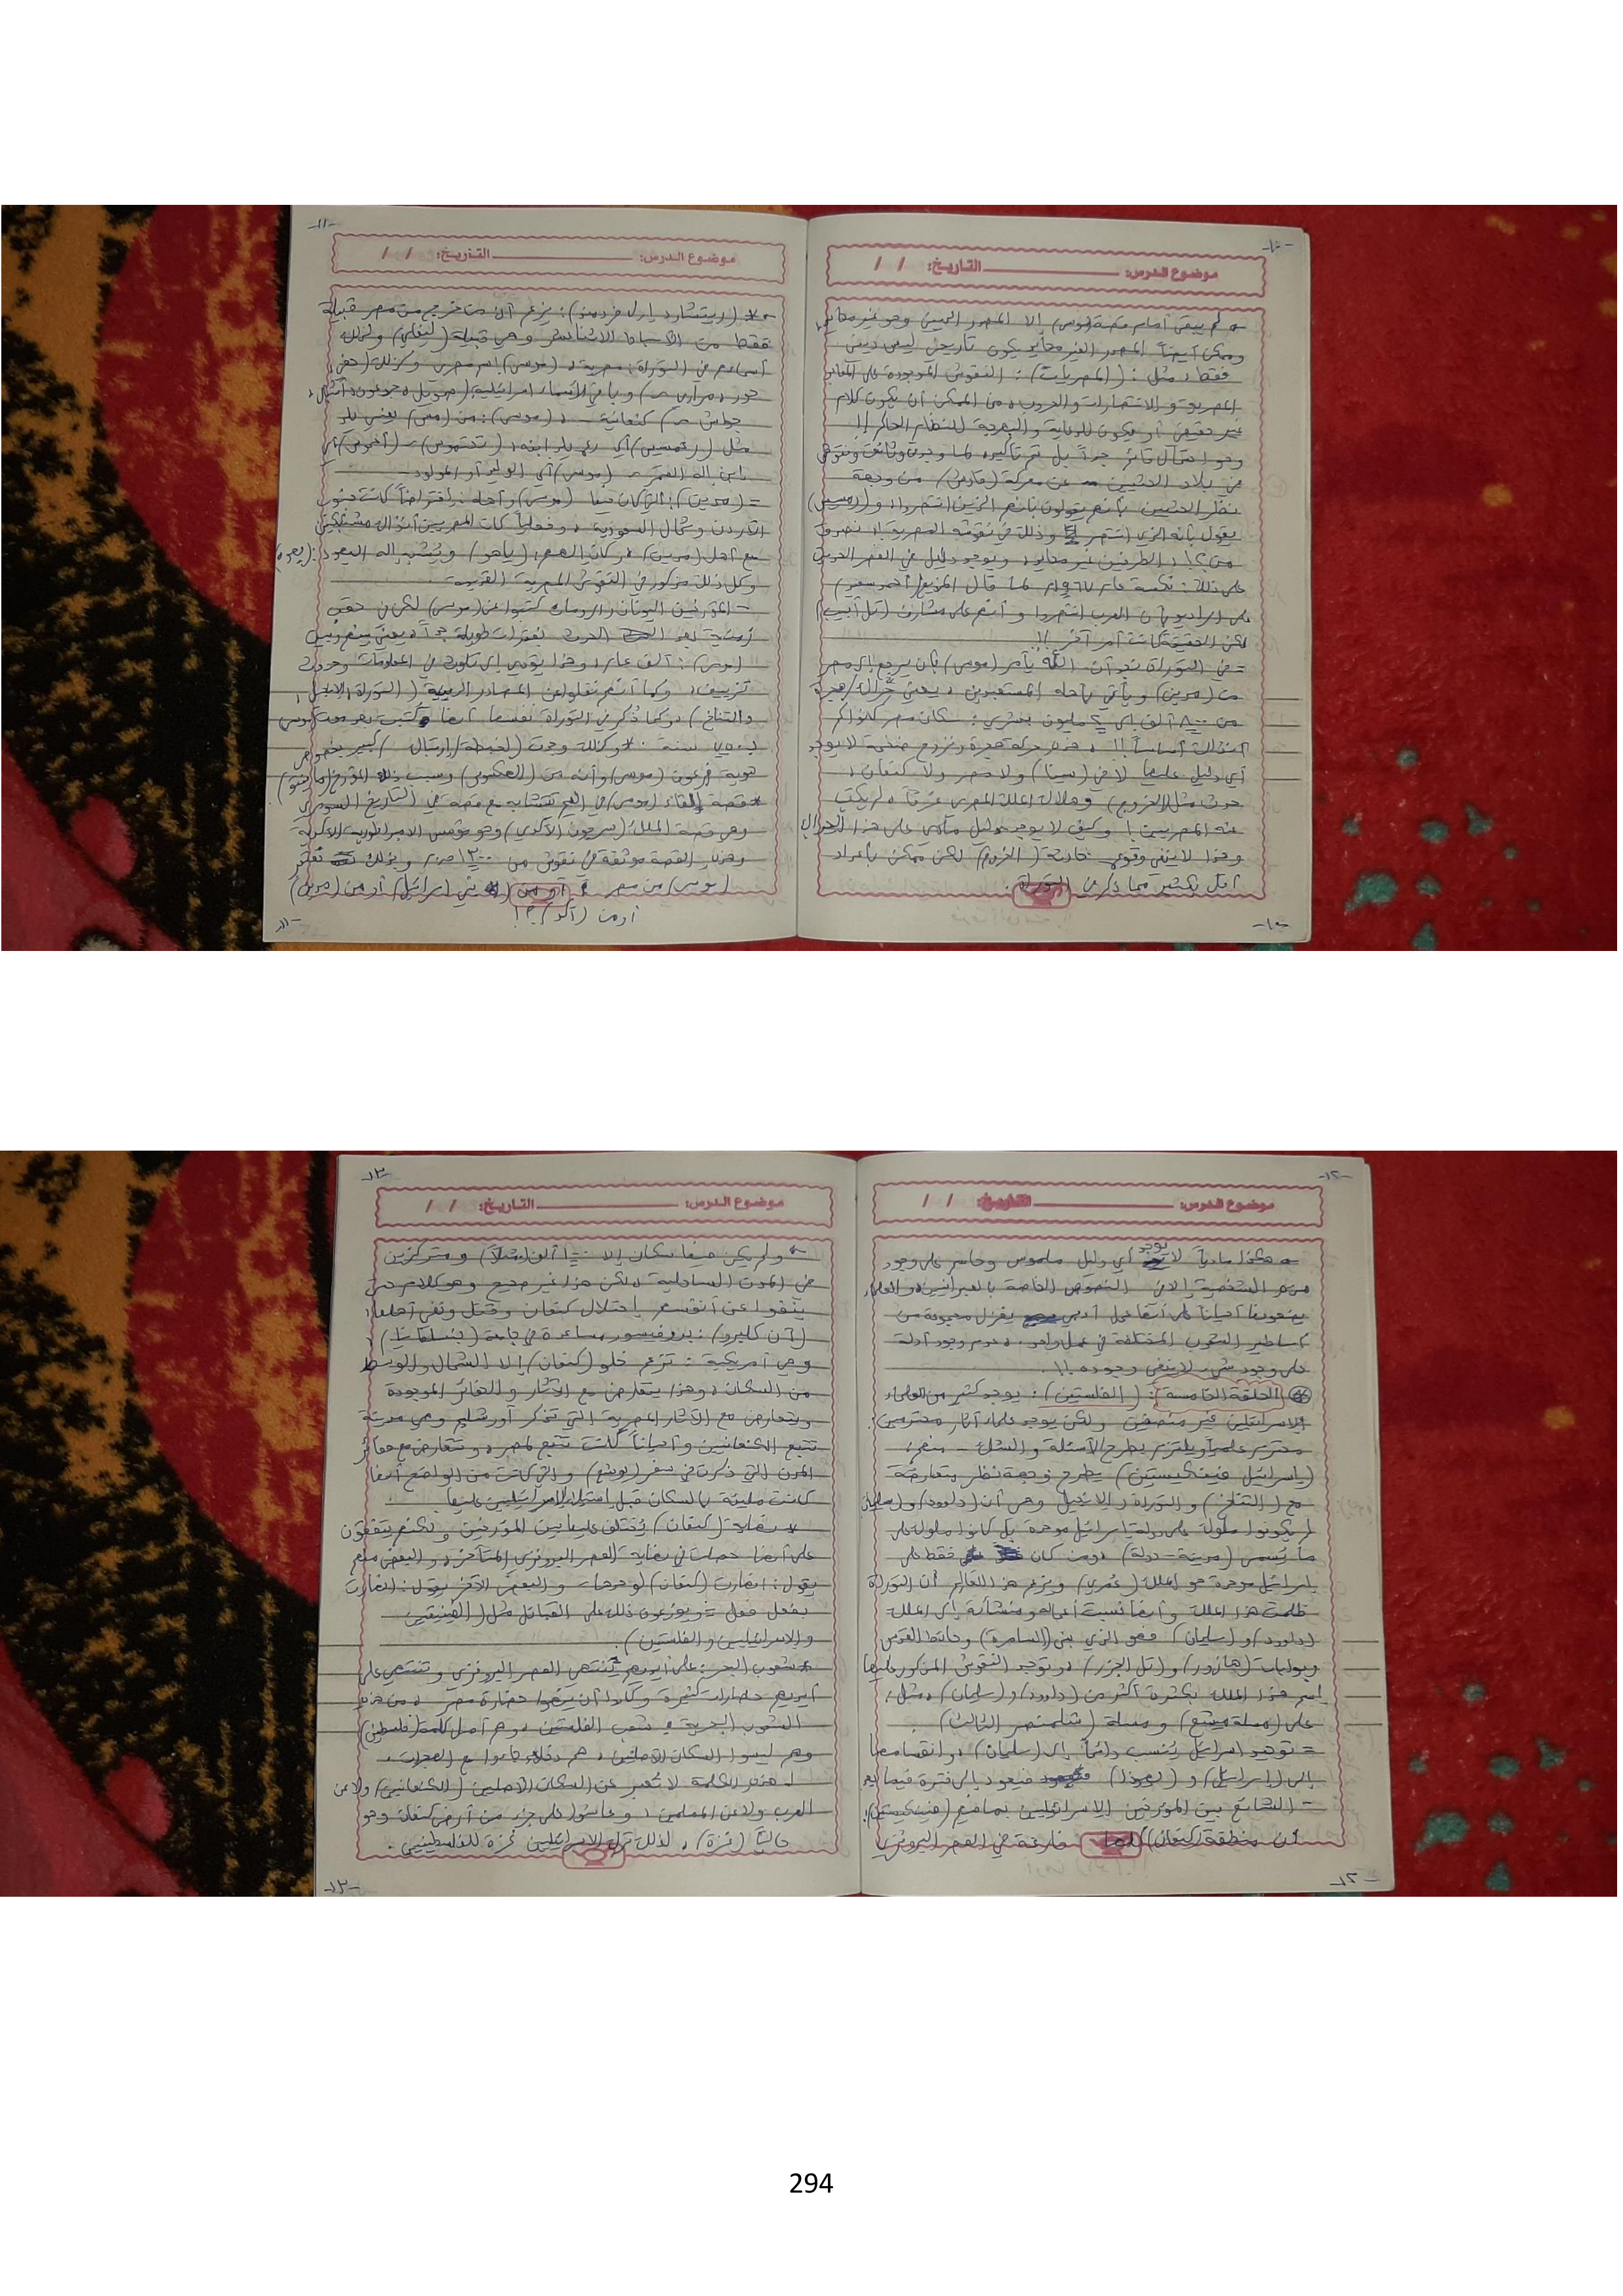 -١٠-
موضوع الدرس: التاريخ: / /
لم يبقى أمام قصة (موسى) إلا المصدر الديني وهو غير محايد،
وممكن أيضاً المصدر الغير محايد يكون تاريخي ليس ديني
فقط، مثل: (المصريات): النقوش الموجودة على المعابد
المصرية والانتصارات والحروب، من الممكن أن يكون كلام
غير حقيقي أو يكون للدعاية والبهرجة للنظام الحاكم!!
وهو احتمال قائم جداً بل تم تأكيده، كما وجدت وثائق ونقوش
في بلاد الحثيين عن معركة (قادش) من وجهة
نظر الحثيين بأنهم يقولون بأنهم الذين انتصروا، و(رمسيس)
يقول بأنه الذي انتصر وذلك في نقوشه المصرية!! نصدق
من؟!، الطرفين غير محايد، ويوجد دليل في العصر الحديث
على ذلك: نكسة عام ١٩٦٧م كما قال المذيع (أحمد سعيد)
على الراديو بأن العرب انتصروا وأنهم على مشارف (تل أبيب)
لكن الحقيقة كانت أمر آخر!!.
= في التوراة نجد أن الله يأمر (موسى) بأن يرجع إلى مصر
من (مدين) ويأتي بأهله المستعبدين، يعني حراك/هجرة
من ٨٠٠ ألف إلى ٢ مليون بشري: سكان مصر كانوا كم
آنذاك أساساً!!، هذه حركة هجرة ونزوح ضخمة لا يوجد
أي دليل عليها لا في (سينا) ولا مصر ولا كنعان،
حدث مثل (الخروج) وهلاك الملك المصري غرقاً، لم يكتب
عنه المصريين! وكيف لا يوجد دليل مادي على هذا الحراك
وهذا لا ينفي وقوع حادثة (الخروج) لكن ممكن بأعداد
أقل بكثير مما ذكر في التوراة.
-١٠-
-١١-
موضوع الدرس: التاريخ: / /
* (ريتشارد إليوت فريدمن): يزعم أن من خرج من مصر قبيلة
فقط من الأسباط الاثنا عشر وهي قبيلة (ليفاي) ولذلك
أسمائهم في التوراة: مصرية، (موسى) اسم مصري وكذلك (حفني
حور، مراري) وباقي الأسماء اسرائيلية (صموئيل، جدعون، أشكال
كنعانية، (موسى): من (مس) يعني ولد
مثل (رعمسيس) أي رع ولد ابنه، (تحتمس) (أحموس) أي
ابن إله القمر (موسى) أي الوليد أو المولود.
= (مدين): التي كان فيها (موسى) وأهله: افتراضاً كانت جنوب
الأردن وشمال السعودية، وفعلياً كان المصريين آنذاك مشتبكين
مع أهل (مدين)، وكان إلههم: (ياهو) ويُشبه إله اليهود: (يهوه)
وكل ذلك مذكور في النقوش المصرية القديمة.
- المؤرخين اليونان والرومان كتبوا عن (موسى) لكن في حقب
زمنية بعد الحدث بفترات طويلة جداً، يعني بينهم وبين
(موسى): ألف عام، وهذا يؤدي إلى تلوث في المعلومات وحدوث
تزييف، وكما أنهم نقلوا عن المصادر الدينية (التوراة، الإنجيل،
والتناخ)، وكما ذكر في التوراة نفسها أنها كتبت بعد موسى
بـ ٧٥٠ سنة، وكذلك وجدت لخبطة/ارتباك كبير بخصوص
هوية فرعون (موسى) وأنه من (الهكسوس) وسبب ذلك المؤرخ (مانيتو)
* قصة إلقاء (موسى) في اليم تتشابه مع قصة في التاريخ السومري
وهي قصة الملك (سرجون الأكدي) وهو مؤسس الامبراطورية الأكدية
وهذه القصة موثقة في نقوش من ق.م وبذلك تعتبر
(موسى) من مصر أو من (بني إسرائيل) أو من (مدين)
أو من (أكد)؟!
-١١-
-١٢-
موضوع الدرس: التاريخ: / /
هكذا مادياً لا يوجد أي دليل ملموس وحاسم على وجود
هذه الشخصية إلا في النصوص الخاصة بالعبرانيين، والعلماء
يصفونها أحياناً على أنها عمل أدبي يغزل مجموعة من
أساطير الشعوب المختلفة في عمل واحد، عدم وجود أدلة
على وجود شيء لا ينفي وجوده!!.
* الحلقة الخامسة: (الفلستين): يوجد كثير من العلماء
الإسرائيليين غير منصفين ولكن يوجد علماء آثار محترمين:
محترم علمياً ويلتزم بطرح الأسئلة والشك منهم:
(إسرائيل فينكلستين) يطرح وجهة نظر متعارضة
مع (التناخ) والتوراة والإنجيل وهي أن (داوود) و(سليمان)
لم يكونوا ملوك على دولة إسرائيل موحدة بل كانوا ملوك على
ما يُسمى (مدينة-دولة)، ومن كان فقط على
إسرائيل موحدة هو الملك (عُمري) ويزعم هذا العالِم أن التوراة
ظلمت هذا الملك وأنها نسبت أعماله ومنشآته إلى الملك
(داوود) و(سليمان) فهو الذي بنى (السامرة) وحائط القدس
وبوابات (هازور) و(تل الجزر)، وتوجد النقوش المذكور عليها
إسم هذا الملك بكثرة أكثر من (داوود) و(سليمان)، مثل:
على (مسلة ميشع) ومسلة (شلمنصر الثالث).
= توحيد إسرائيل يُنسب دائماً إلى (سليمان)، وانقسامها
إلى (إسرائيل) و(يهوذا) فيعود إلى فترة فيما بعد
- الشائع بين المؤرخين الإسرائيليين بما فيهم (فينكلستين):
أن منطقة (كنعان) كلها فارغة في العصر البرونزي
-١٢-
-١٣-
موضوع الدرس: التاريخ: / /
ولم يكن فيها سكان إلا ١٠٠ ألف (مثلاً) ومتركزين
في المدن الساحلية، لكن هذا غير صحيح وهو كلام حتى
ينفوا عن أنفسهم احتلال كنعان وقتل ونفي أهلها،
(آن كليبرو): بروفيسور مساعدة في جامعة (بنسلفانيا)
وهي أمريكية: تزعم خلو (كنعان) إلا الشمال والوسط
من السكان، وهذا يتعارض مع الآثار والحفائر الموجودة
ويتعارض مع الآثار المصرية التي تذكر أورشليم وهي مدينة
تتبع الكنعانيين وأحياناً كانت تتبع لمصر، وتتعارض مع حفائر
المدن التي ذكرت في سفر (يوشع) والتي كانت من الواضح أنها
كانت مليئة بالسكان قبل استيلاء الإسرائيليين عليها.
* نهاية (كنعان) يُختلف عليها بين المؤرخين ولكنهم يتفقون
على أنها حصلت في نهاية العصر البرونزي المتأخر، والبعض منهم
يقول: انهارت (كنعان) لوحدها، والبعض الآخر يقول: انهارت
بفعل فعل = ويوزعون ذلك على القبائل مثل (الفينيقيين
والإسرائيليين والفلستين).
* شعوب البحر: على أيديهم يُنتهى العصر البرونزي وتنتهي على
أيديهم حضارات كثيرة وكادوا أن ينهوا حضارة مصر، من هذه
الشعوب البحرية شعب الفلستين، وهم أصل كلمة (فلسطين)
وهم ليسوا السكان الأصليين، هم دخلاء جاءوا مع الهجرات،
هذه الكلمة لا تُعبر عن السكان الأصليين (الكنعانيين) ولا عن
العرب ولا عن المسلمين، وعاشوا على جزء من أرض كنعان وهو
حالياً (غزة)، لذلك ترك الإسرائيليين غزة للفلسطينيين.
-١٣-
294